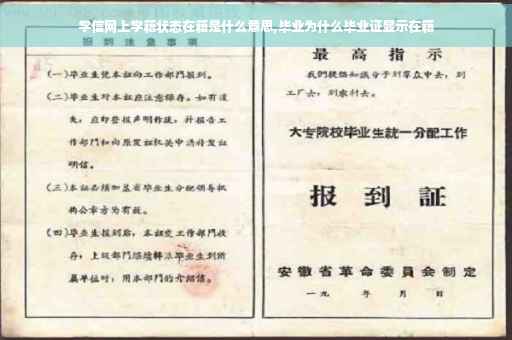 学信网上学籍状态在籍是什么意思,毕业为什么毕业证显示在籍
报到注意事项
(一)毕业生凭本证向工作部门报到。
(二)毕业生对本证应注意保存。如有遗
失,应即登报声明作废,并报告工
作部门和向原发证机关申请补发证
明信。
(三)本证必须加盖省毕业生分配领导机
构公章方为有效。
(四)毕业生报到后,本证交工作部门收
存,上级部门继续转派毕业生到所
属单位时,用本部门的介绍信。
最高指示
我们提倡知识分子到群众中去,到
工厂去,到农村去。
大专院校毕业生統一分配工作
报到証
安徽省革命委員会制定
一九 年 月 日